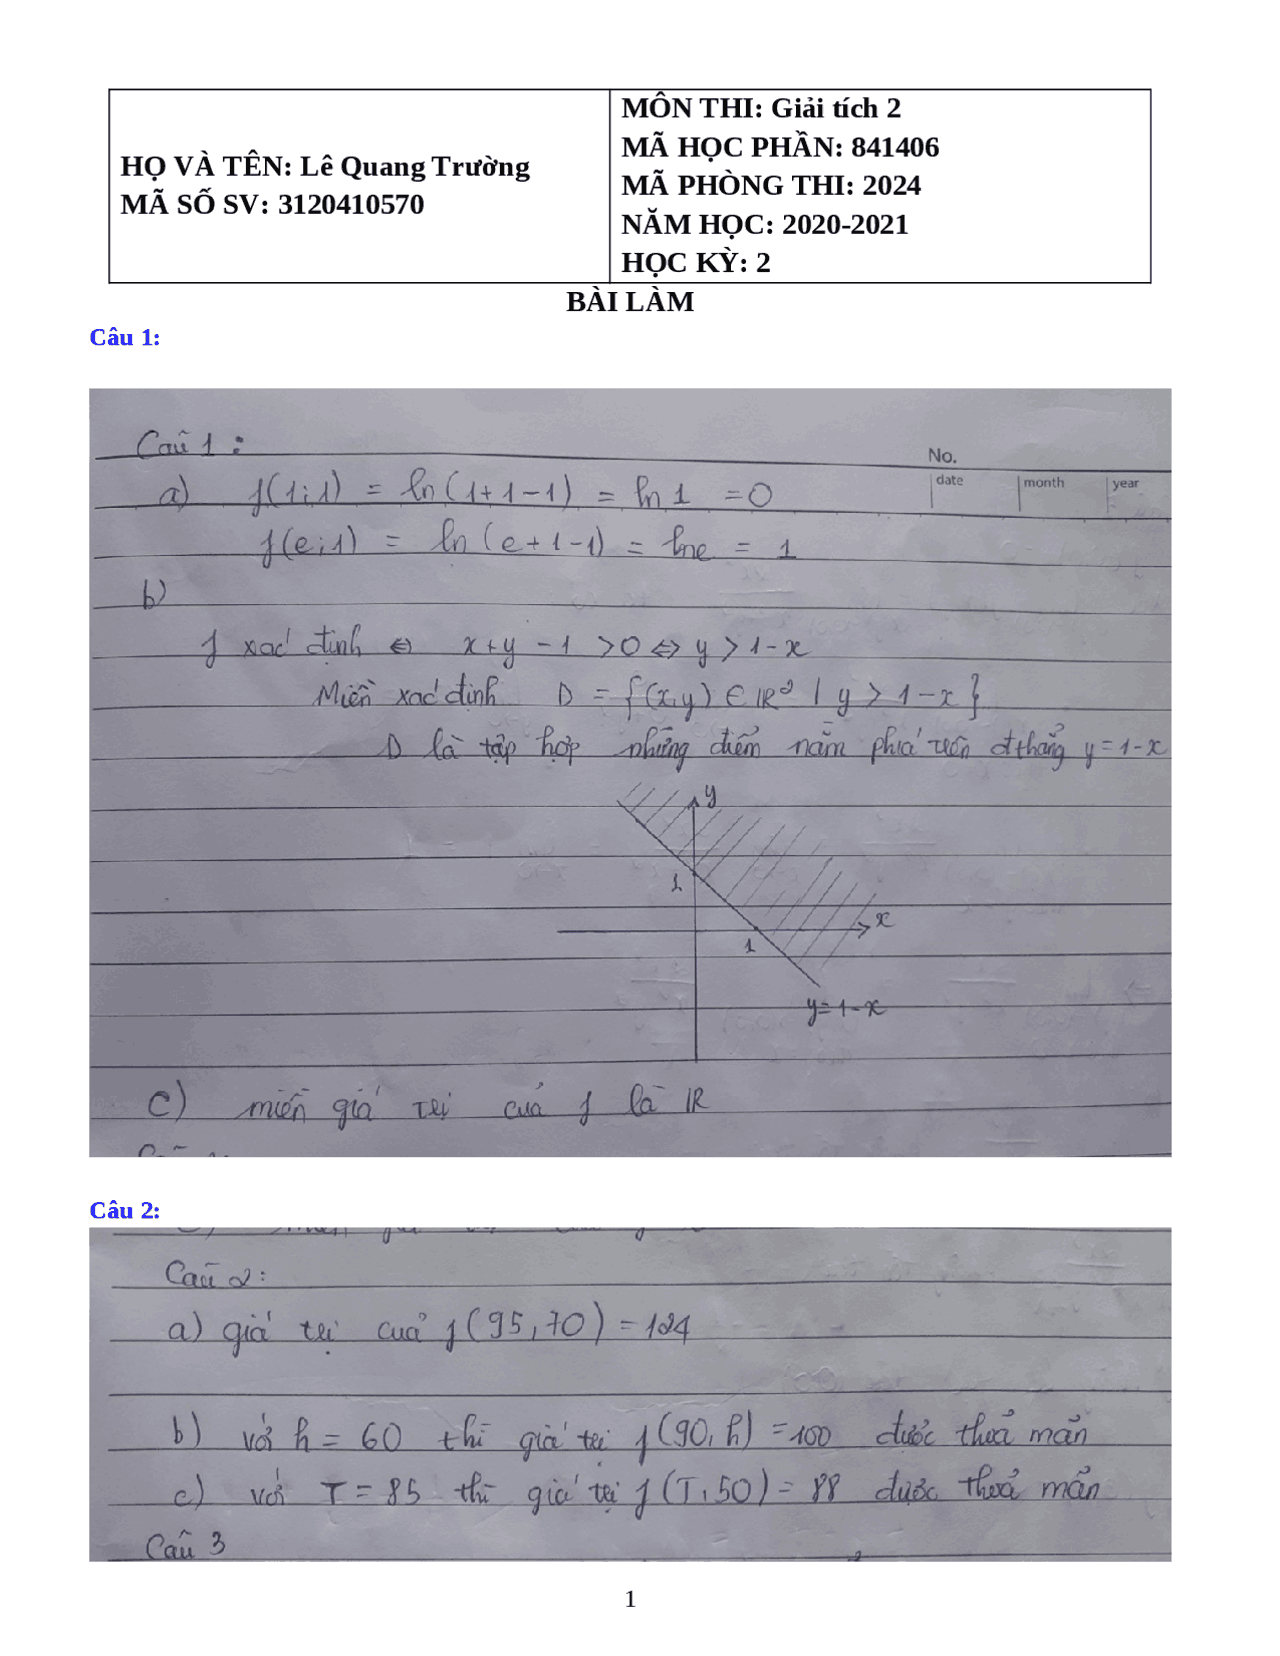 HỌ VÀ TÊN: Lê Quang Trường
MÃ SỐ SV: 3120410570
MÔN THI: Giải tích 2
MÃ HỌC PHẦN: 841406
MÃ PHÒNG THI: 2024
NĂM HỌC: 2020-2021
HỌC KỲ: 2
BÀI LÀM
Câu 1:
Câu 1:
No.
date month year
a) f(1;1) = ln(1+1-1) = ln 1 = 0
f(e;1) = ln(e+1-1) = lne = 1
b)
f xác định ⇔ x+y-1 >0 ⇔ y > 1-x
Miền xác định D = {(x,y) ∈ ℝ² | y > 1-x}
D là tập hợp những điểm nằm phía trên đthẳng y = 1-x
y
1
x
1
y=1-x
c) miền giá trị của f là ℝ
Câu 2:
Câu 2:
a) giá trị của f(95,70) = 124
b) với h = 60 thì giá trị f(90,h) = 100 được thoả mãn
c) với T = 85 thì giá trị f(T,50) = 88 được thoả mãn
Câu 3
1